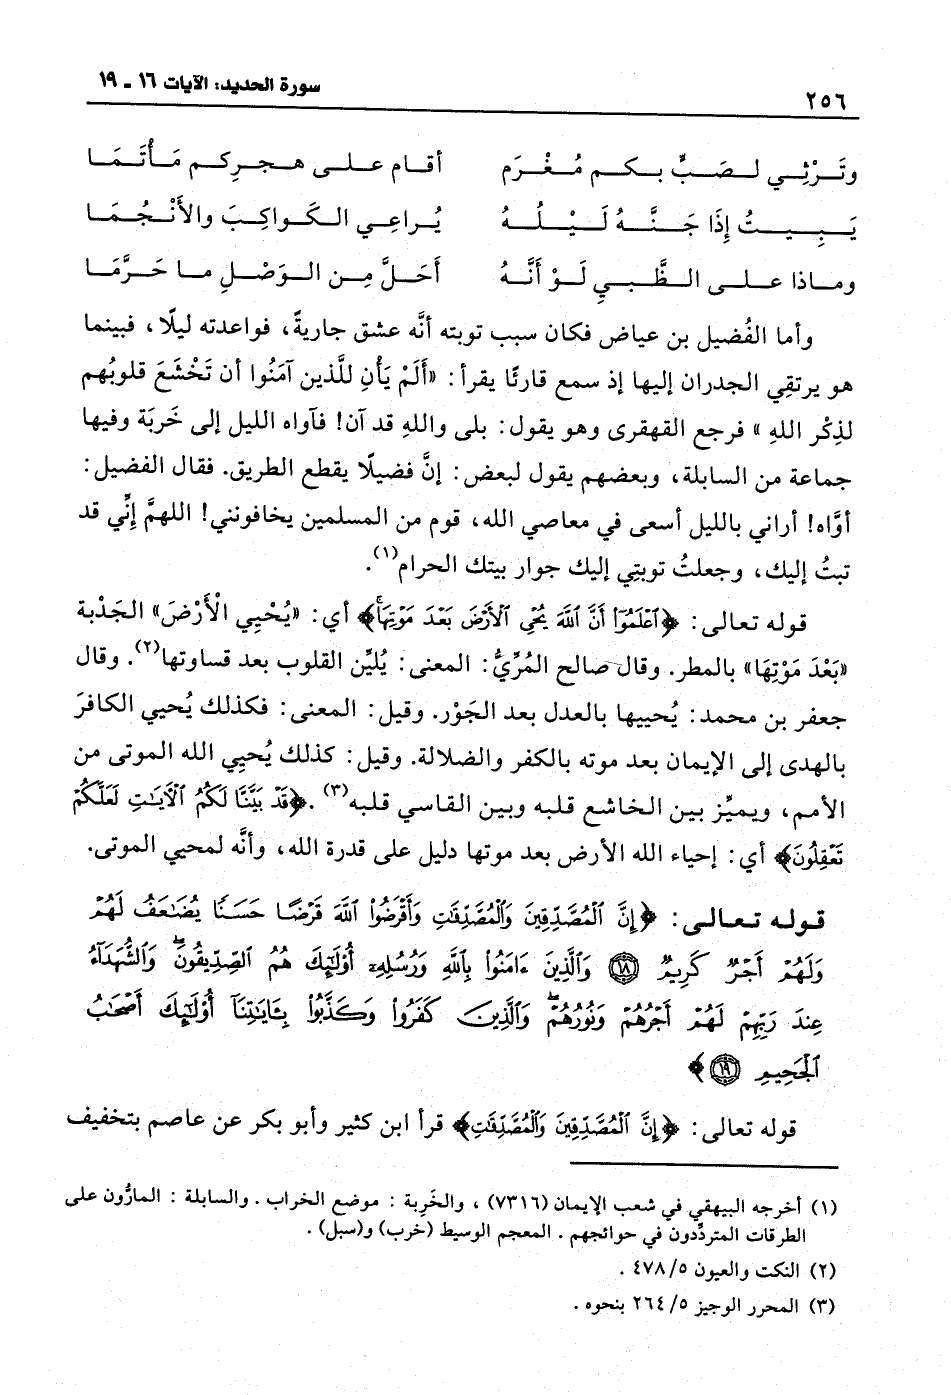 ٢٥٦
سورة الحديد: الآيات ١٦ ـ ١٩
وتَـرْثِـي لـصَـبٍّ بـكـم مُـغْـرَم أقـام عـلـى هـجـرِكـم مَـأْتَـمَـا
يَـبِـيـتُ إِذَا جَـنَّـهُ لَـيْـلُـهُ يُـراعِـي الـكَـواكِـبَ والأَنْـجُـمَـا
ومـاذا عـلـى الـظَّـبـيِ لَـوْ أَنَّـهُ أَحَـلَّ مِـن الـوَصْـلِ مـا حَـرَّمَـا
وأما الفُضيل بن عياض فكان سبب توبته أنَّه عشق جاريةً، فواعدته ليلًا، فبينما
هو يرتقِي الجدران إليها إذ سمع قارئًا يقرأ: «أَلَمْ يَأْنِ للَّذين آمَنُوا أن تَخْشَعَ قلوبُهم
لذِكْر اللهِ» فرجع القهقرى وهو يقول: بلى واللهِ قد آن! فآواه الليل إلى خَربَة وفيها
جماعة من السابلة، وبعضهم يقول لبعض: إنَّ فضيلًا يقطع الطريق. فقال الفضيل:
أوَّاه! أراني بالليل أسعى في معاصي الله، قوم من المسلمين يخافونني! اللهمَّ إنِّي قد
تبتُ إليك، وجعلتُ توبتِي إليك جوار بيتك الحرام(١).
قوله تعالى: ﴿ٱعْلَمُوٓا۟ أَنَّ ٱللَّهَ يُحْىِ ٱلْأَرْضَ بَعْدَ مَوْتِهَا﴾ أي: «يُحْيِي الْأَرْضَ» الجَدْبة
«بَعْدَ مَوْتِهَا» بالمطر. وقال صالح المُرِّيُّ: المعنى: يُليِّن القلوب بعد قساوتها(٢). وقال
جعفر بن محمد: يُحييها بالعدل بعد الجَوْر. وقيل: المعنى: فكذلك يُحيي الكافرَ
بالهدى إلى الإيمان بعد موته بالكفر والضلالة. وقيل: كذلك يُحيِي الله الموتى من
الأمم، ويميِّز بين الخاشع قلبه وبين القاسي قلبه(٣). ﴿قَدْ بَيَّنَّا لَكُمُ ٱلْـَٔايَـٰتِ لَعَلَّكُمْ
تَعْقِلُونَ﴾ أي: إحياء الله الأرض بعد موتها دليل على قدرة الله، وأنَّه لمحيي الموتى.
قولـه تـعـالـى: ﴿إِنَّ ٱلْمُصَّدِّقِينَ وَٱلْمُصَّدِّقَـٰتِ وَأَقْرَضُوا۟ ٱللَّهَ قَرْضًا حَسَنًا يُضَـٰعَفُ لَهُمْ
وَلَهُمْ أَجْرٌ كَرِيمٌ ١٨ وَٱلَّذِينَ ءَامَنُوا۟ بِٱللَّهِ وَرُسُلِهِۦٓ أُو۟لَـٰٓئِكَ هُمُ ٱلصِّدِّيقُونَ ۖ وَٱلشُّهَدَآءُ
عِندَ رَبِّهِمْ لَهُمْ أَجْرُهُمْ وَنُورُهُمْ ۖ وَٱلَّذِينَ كَفَرُوا۟ وَكَذَّبُوا۟ بِـَٔايَـٰتِنَآ أُو۟لَـٰٓئِكَ أَصْحَـٰبُ
ٱلْجَحِيمِ ١٩﴾
قوله تعالى: ﴿إِنَّ ٱلْمُصَّدِّقِينَ وَٱلْمُصَّدِّقَـٰتِ﴾ قرأ ابن كثير وأبو بكر عن عاصم بتخفيف
(١) أخرجه البيهقي في شعب الإيمان (٧٣١٦) ، والخَرِبة : موضع الخراب . والسابلة : المارُّون على
الطرقات المتردِّدون في حوائجهم . المعجم الوسيط (خرب) و(سبل) .
(٢) النكت والعيون ٥/ ٤٧٨ .
(٣) المحرر الوجيز ٥/ ٢٦٤ بنحوه .